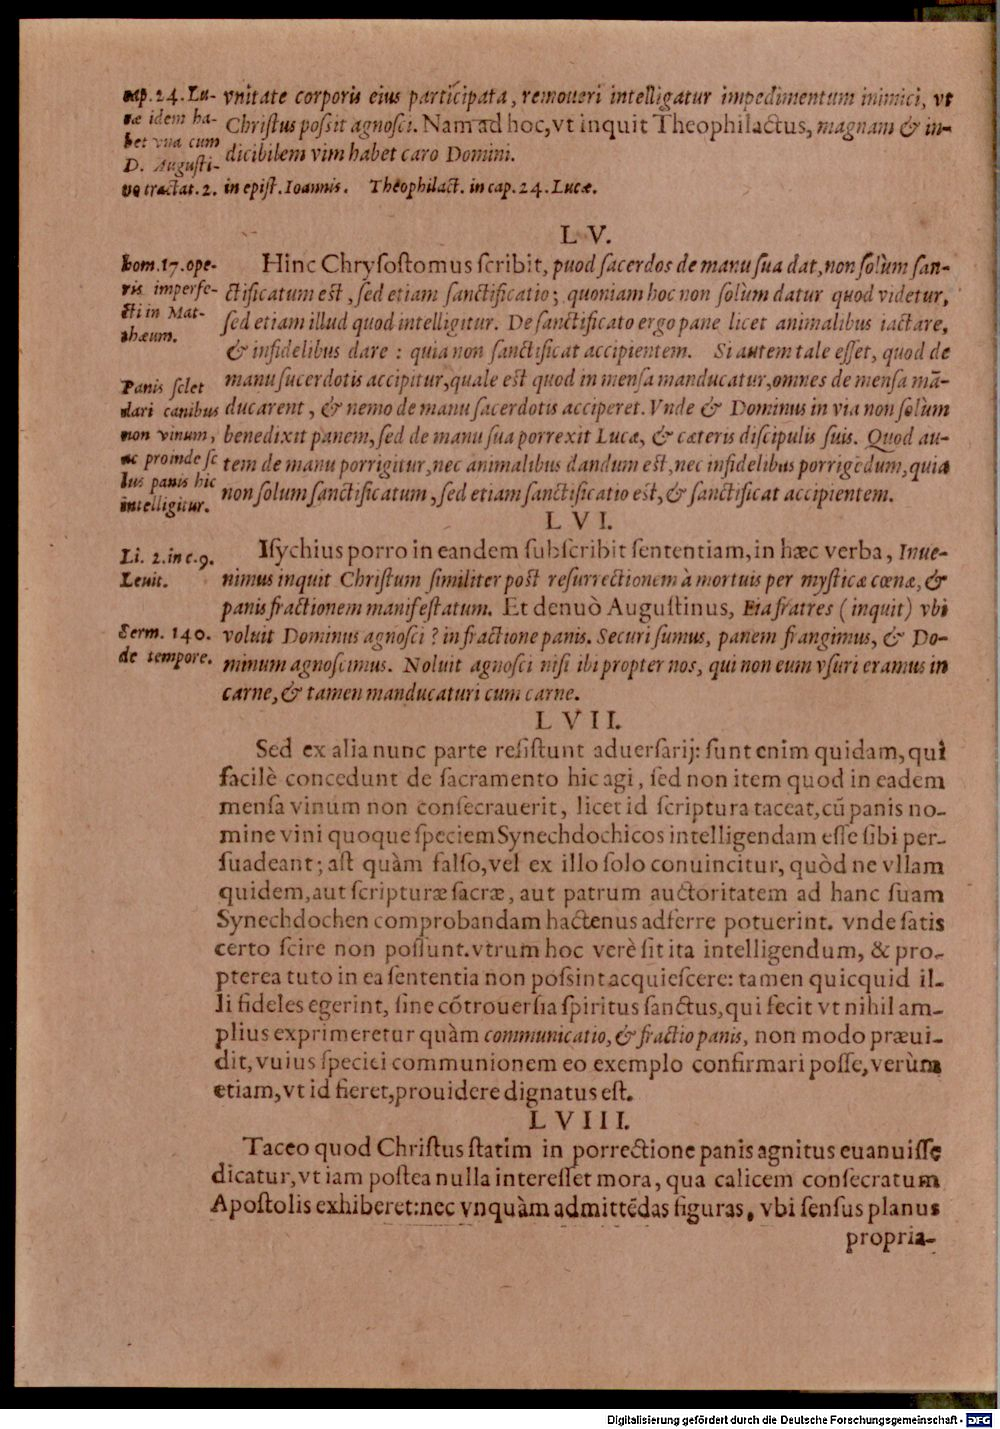 cap. 24. Lu-
cæ idem ha-
bet vna cum
D. Augusti-
no tractat. 2.
vnitate corporis eius participata, remoueri intelligatur impedimentum inimici, vt
Christus possit agnosci. Nam ad hoc, vt inquit Theophilactus, magnam & in-
dicibilem vim habet caro Domini.
in epist. Ioannis. Theophilact. in cap. 24. Lucæ.
LV.
hom. 17. ope-
ris imperfe-
cti in Mat-
thæum.
Hinc Chrysostomus scribit, quod sacerdos de manu sua dat, non solùm san-
ctificatum est, sed etiam sanctificatio; quoniam hoc non solùm datur quod videtur,
sed etiam illud quod intelligitur. De sanctificato ergo pane licet animalibus iactare,
& infidelibus dare : quia non sanctificat accipientem. Si autem tale esset, quod de
manu sacerdotis accipitur, quale est quod in mensa manducatur, omnes de mensa mã-
ducarent, & nemo de manu sacerdotis acciperet. Vnde & Dominus in via non solùm
benedixit panem, sed de manu sua porrexit Lucæ, & cæteris discipulis suis. Quod au-
tem de manu porrigitur, nec animalibus dandum est, nec infidelibus porrigẽdum, quia
non solum sanctificatum, sed etiam sanctificatio est, & sanctificat accipientem.
Panis solet
dari canibus
non vinum,
ac proinde so
lus panis hic
intelligitur.
LVI.
Li. 2. in c. 9.
Leuit.
Isychius porro in eandem subscribit sententiam, in hæc verba, Inue-
nimus inquit Christum similiter post resurrectionem à mortuis per mysticæ cœnæ, &
panis fractionem manifestatum. Et denuò Augustinus, Eia fratres (inquit) vbi
voluit Dominus agnosci ? in fractione panis. Securi sumus, panem frangimus, & Do-
minum agnoscimus. Noluit agnosci nisi ibi propter nos, qui non eum visuri eramus in
carne, & tamen manducaturi cum carne.
Serm. 140.
de tempore.
LVII.
Sed ex alia nunc parte resistunt aduersarij: sunt enim quidam, qui
facilè concedunt de sacramento hic agi, sed non item quod in eadem
mensa vinum non consecrauerit, licet id scriptura taceat, cũ panis no-
mine vini quoque speciem Synechdochicos intelligendam esse sibi per-
suadeant; ast quàm falso, vel ex illo solo conuincitur, quòd ne vllam
quidem, aut scripturæ sacræ, aut patrum auctoritatem ad hanc suam
Synechdochen comprobandam hactenus adferre potuerint. vnde satis
certo scire non possunt. vtrum hoc verè sit ita intelligendum, & pro-
pterea tuto in ea sententia non possint acquiescere: tamen quicquid il-
li fideles egerint, sine cõtrouersia spiritus sanctus, qui fecit vt nihil am-
plius exprimeretur quàm communicatio, & fractio panis, non modo præui-
dit, vnius speciei communionem eo exemplo confirmari posse, verùm
etiam, vt id fieret, prouidere dignatus est.
LVIII.
Taceo quod Christus statim in porrectione panis agnitus euanuisse
dicatur, vt iam postea nulla interesset mora, qua calicem consecratum
Apostolis exhiberet: nec vnquàm admittẽdas figuras, vbi sensus planus
propria-
Digitalisierung gefördert durch die Deutsche Forschungsgemeinschaft - DFG